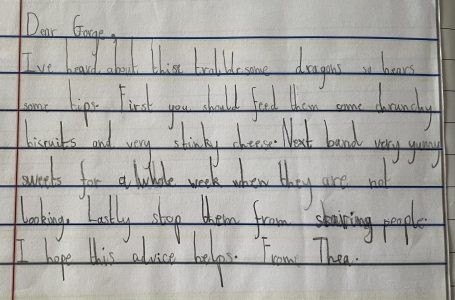 Dear Gorge,
I've heard about thise trallblesome dragons so hears
some tips. First you should feed them some chrunchy
biscuits and very stinky cheese. Next band very yumy
sweets for a whole week when they are not
looking. Lastly stop them from scaring people.
I hope this advice helps. From Thea.